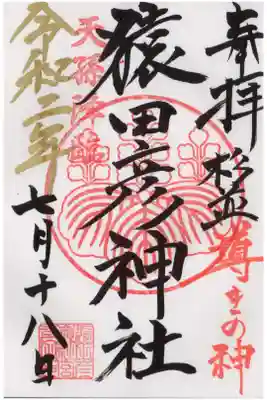 奉拝
杉並
導きの神
猿田彦神社
天孫降臨
令和二年
七月十八日